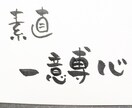 素直
一意専心